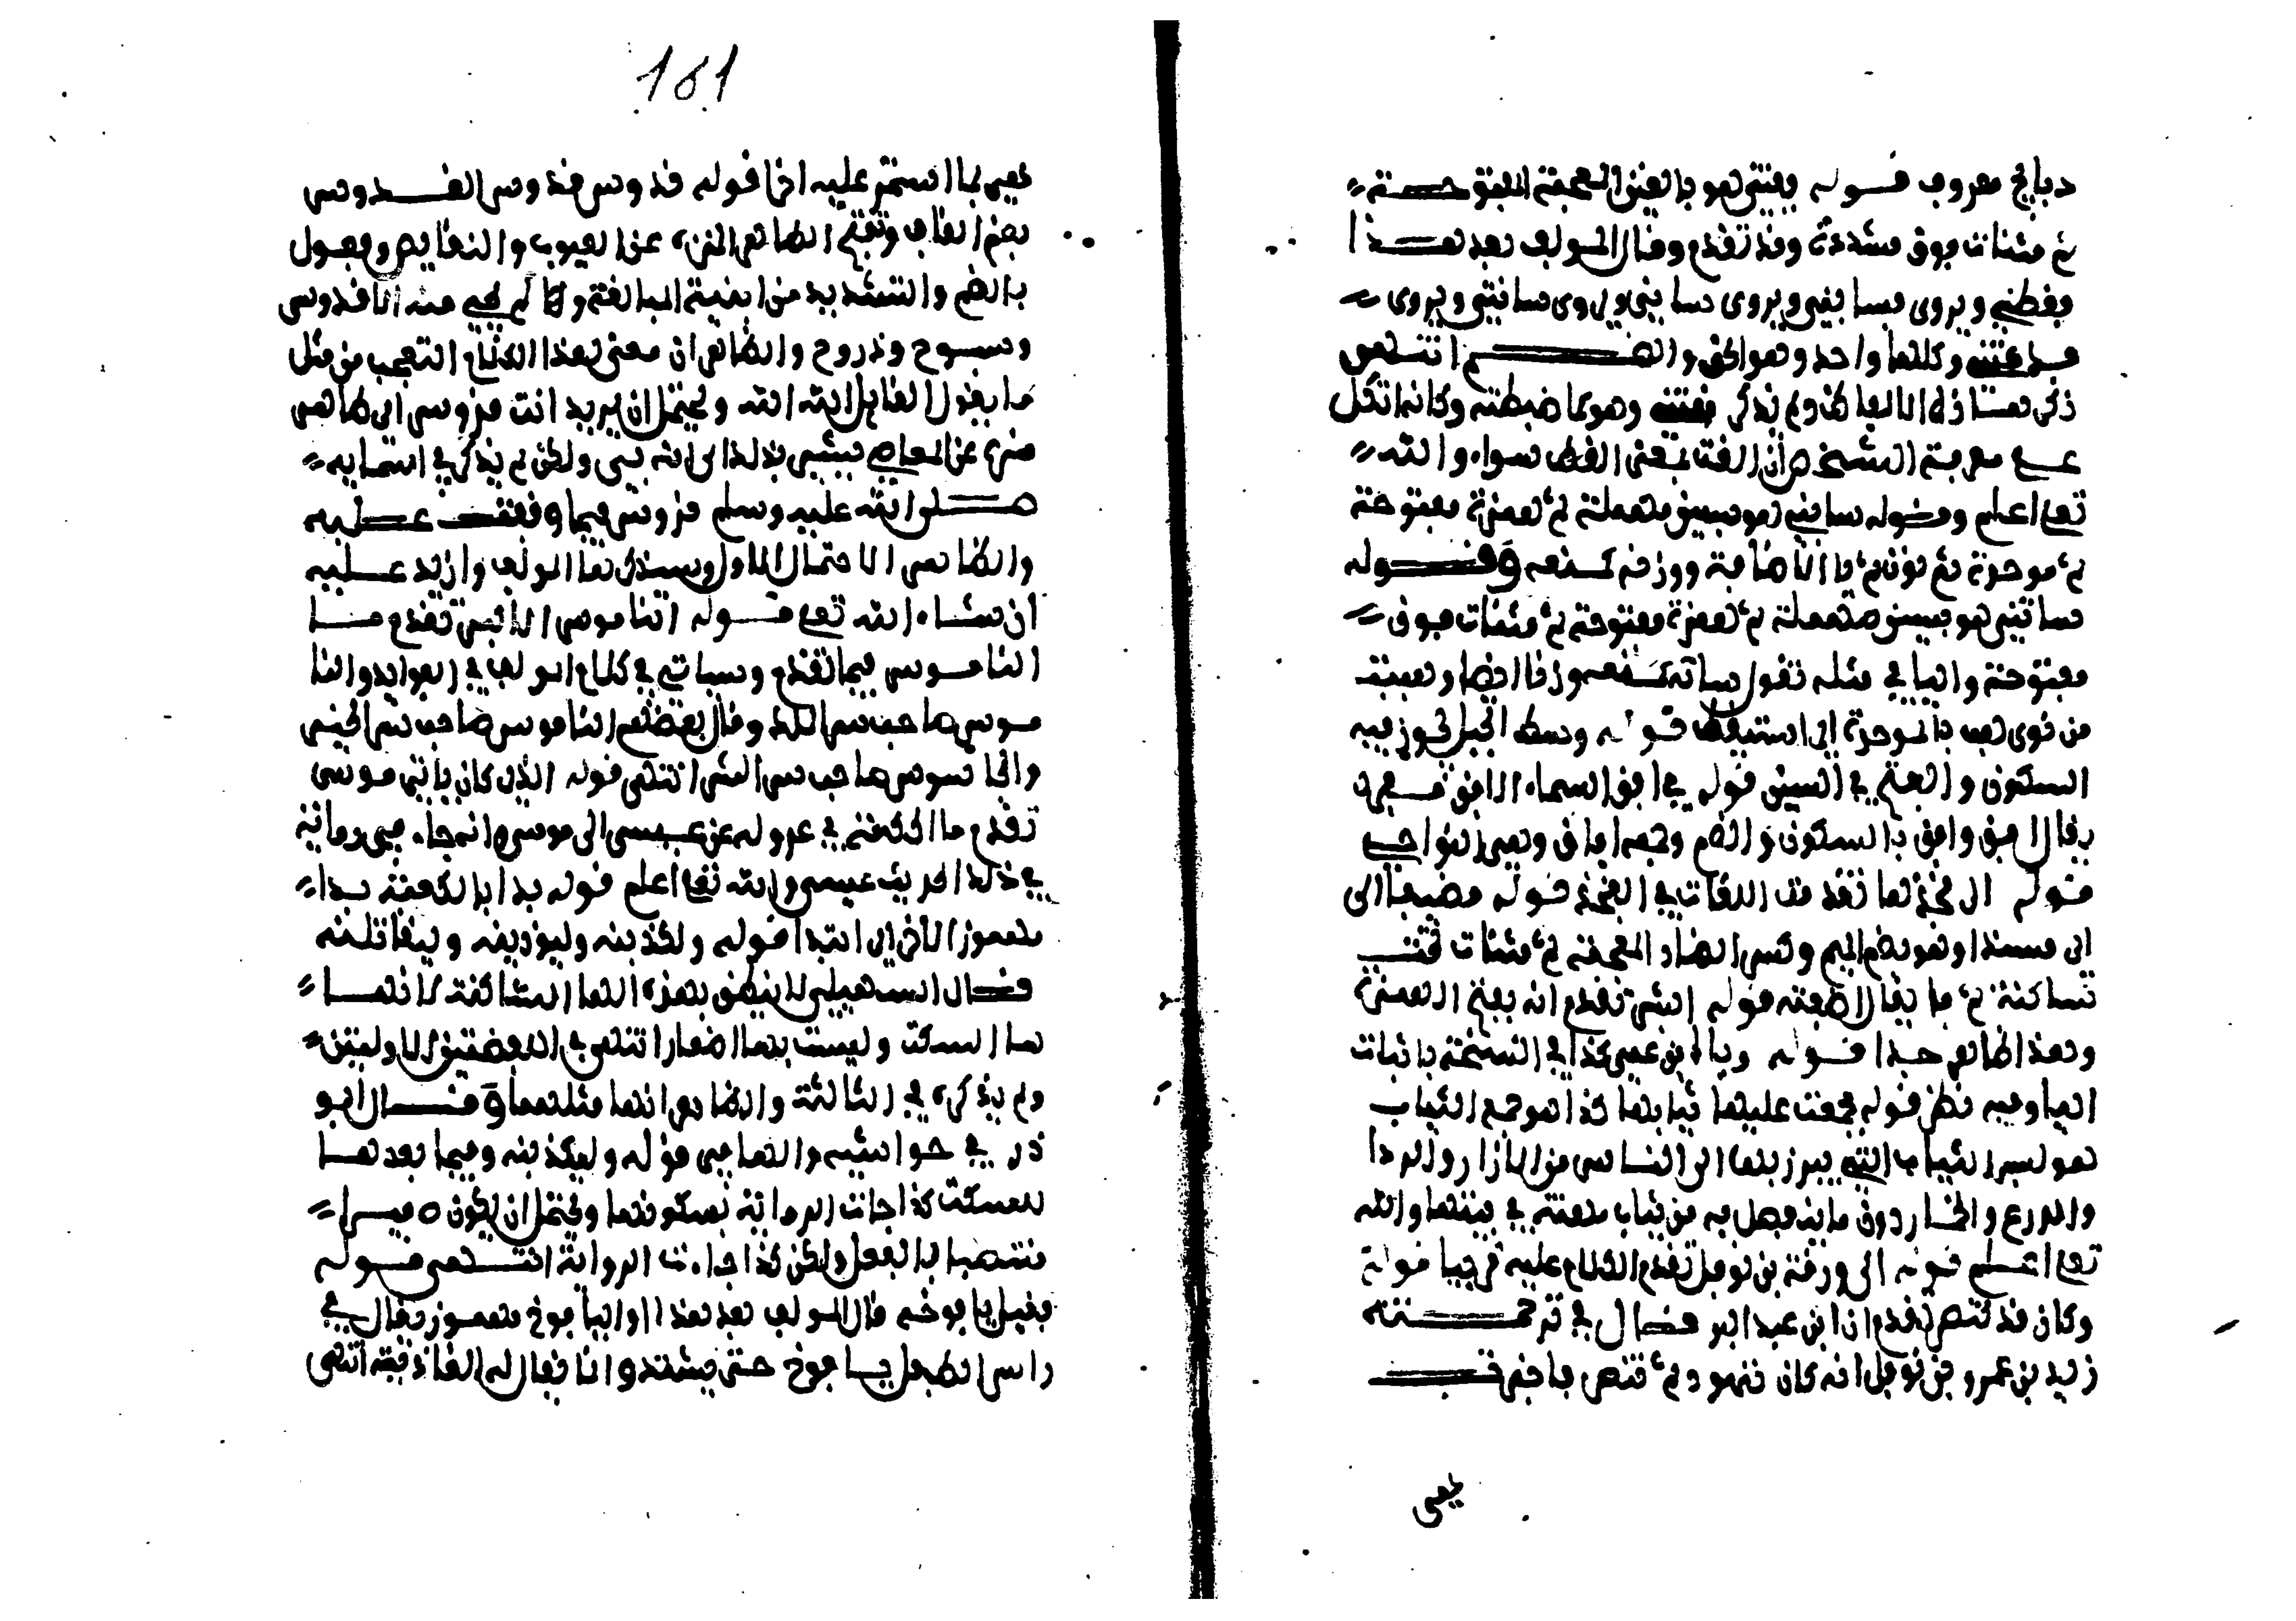 ديباج معروف قوله فغتني هو بالغين المعجمة المفتوحة
ثم مثنات فوق مشددة وقد تقدم وقال المولف بعد هذا
فغطني ويروى فسابني ويروى سابني ويروى ساتني ويروى
فدعتني وكلها واحد وهو الخنق والغم انتهى
ذكر هنا ذلك الالفاظ ولم يذكر فغتني وهو كما ضبطته وكانه اتكل
على معرفة الشخص ان الغت بمعنى الغط سواء والله
تعلى اعلم وقوله سابني هو بسين مهملة ثم همزة مفتوحة
ثم موحدة ثم نون ثم يا الاضافة ووزنه كمنعه وقوله
ساتني هو بسين مهملة ثم همزة مفتوحة ثم مثنات فوق
مفتوحة والباقي مثله تقول ساته كمنعه وزنا ايضا
قوله وسط الجبل يجوز فيه
السكون والفتح في السين قوله في افق السماء الافق
يقال افق وافق بالسكون والضم وجمعه افاق وهي النواحي
قوله الى فخذها تقدمت اللغات في الفخذ قوله مضيفا الى
اي مسندا وهو بضم الميم وكسر الضاد المعجمة ثم مثنات تحت
ساكنة ثم فا يقال اضفته قوله ابشر تقدم انه بفتح الهمزة
وهذا ظاهر جدا قوله ويا ابن عمي كذا في النسخة باثبات
اليا وفيه نظر قوله فجمعت عليها ثيابها كذا هو جمع الثياب
هو لبس الثياب التي يبرز بها الى الناس من الازار والردا
والدرع والخمار دون ما يتفضل به من ثياب مهنته في بيتها والله
تعلى اعلم قوله الى ورقة بن نوفل تقدم الكلام عليه قريبا قوله
وكان قد تنصر تقدم ان ابن عبد البر قال في ترجمته
زيد بن عمرو بن نوفل انه كان تهود ثم تنصر
يعني
181
يعني لما استمر عليه اخرا قوله قدوس قدوس القدوس
بضم القاف وتفتح الطاهر المنزه عن العيوب والنقايص وفعول
بالضم والتشديد من ابنية المبالغة ولم يجي منه الا قدوس
وسبوح وذروح والظاهر ان معنى هذا الكلام التعجب من مثل
ما يقول القايل الله الله ويحتمل ان يريد انت قدوس اي طاهر
منزه عن المعاصي يشير بذلك الى انه نبي ولكن لم يذكر في اسمايه
صلى الله عليه وسلم قدوس فيما وقفت عليه
والظاهر الاحتمال الاول وسيذكرها المولف وازيد عليه
ان شاء الله تعلى قوله الناموس الاكبر تقدم ما
الناموس فيما تقدم وسياتي في كلام المولف في الفوايد والنا
موس صاحب سر الملك وقال بعضهم الناموس صاحب سر الخير
والجاسوس صاحب سر الشر انتهى قوله الذي كان ياتي موسى
تقدم ما الحكمة في عدوله عن عيسى الى موسى وانه جاء في رواية
في ذلك الحديث عيسى والله تعلى اعلم قوله بدا بالكعبة بدا
مهموز الاخر اي ابتدا قوله ولتكذبنه ولتوذينه ولتقاتلنه
قال السهيلي لا ينطق بهذه الها الا ساكنة لانها
ها السكت وليست بها اضمار انتهى في اللفظتين الاوليين
ولم يذكره في الثالثة والظاهر انها مثلهما وقال ابو
ذر في حواشيه والها في قوله ولتكذبنه وفيما بعدها
للسكت كذا جات الرواية بسكونها ويحتمل ان يكون ضميرا
منتصبا بالفعل ولكن كذا جاءت الرواية انتهى قوله
فقبل يافوخه قال المولف بعد هذا واليافوخ مهموز يقال في
راس الطفل يافوخ حتى يشتد وانما يقال له الغاذية انتهى